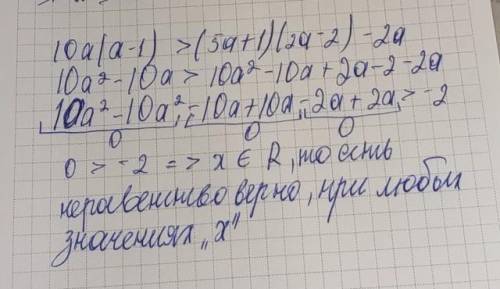 10a(a-1) > (5a+1)(2a-2) -2a
10a²-10a > 10a²-10a+2a-2-2a
10a²-10a²-10a+10a-2a+2a > -2
0 0 0
0 > -2 => x ∈ R, то есть
неравенство верно, при любых
значениях „x"